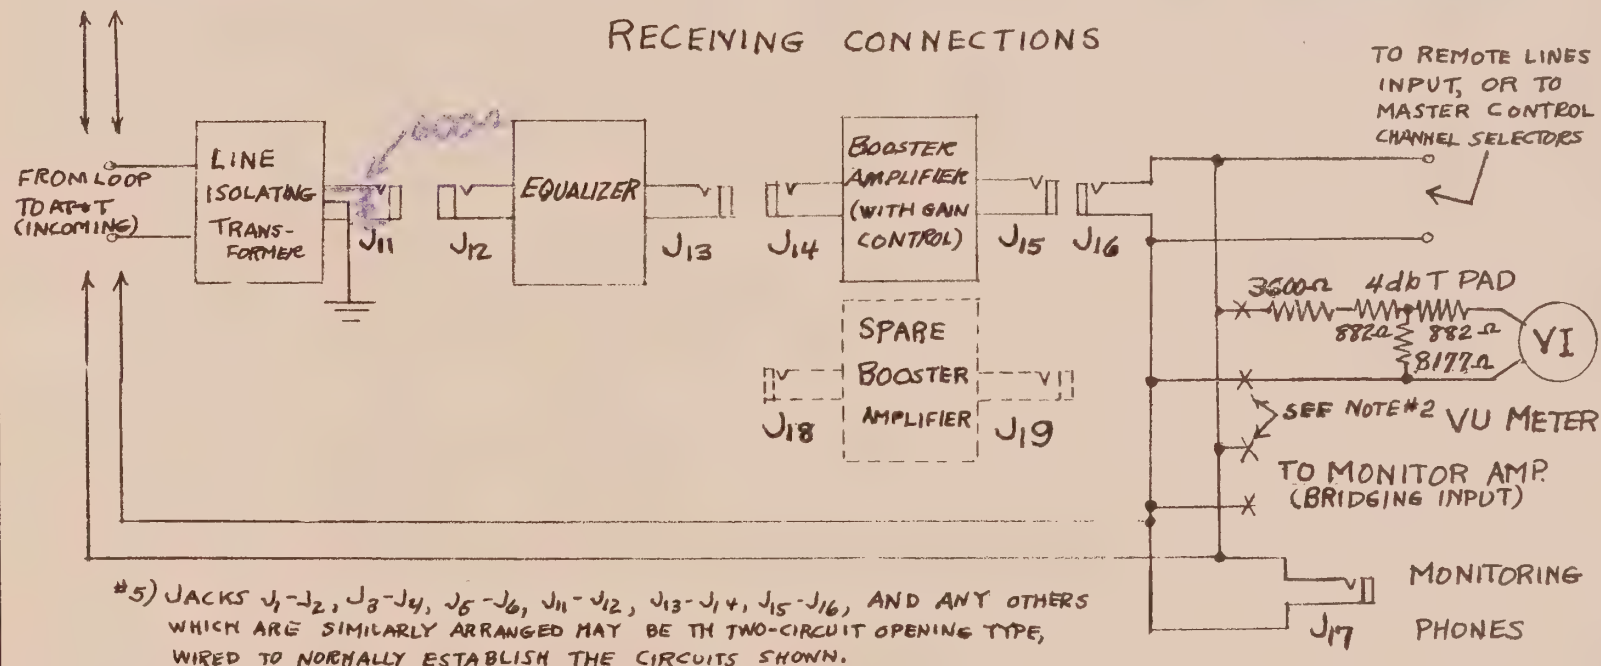 RECEIVING CONNECTIONS
TO REMOTE LINES
INPUT, OR TO
MASTER CONTROL
CHANNEL SELECTORS
600Ω
FROM LOOP
TO AT&T
(INCOMING)
LINE
ISOLATING
TRANS-
FORMER
J11
J12
EQUALIZER
J13
J14
BOOSTER
AMPLIFIER
(WITH GAIN
CONTROL)
J15
J16
3600Ω
4db T PAD
882Ω
882Ω
8177Ω
VI
SPARE
BOOSTER
AMPLIFIER
J18
J19
SEE NOTE #2
VU METER
TO MONITOR AMP.
(BRIDGING INPUT)
MONITORING
PHONES
J17
#5) JACKS J1-J2, J3-J4, J5-J6, J11-J12, J13-J14, J15-J16, AND ANY OTHERS
WHICH ARE SIMILARLY ARRANGED MAY BE TH TWO-CIRCUIT OPENING TYPE,
WIRED TO NORMALLY ESTABLISH THE CIRCUITS SHOWN.